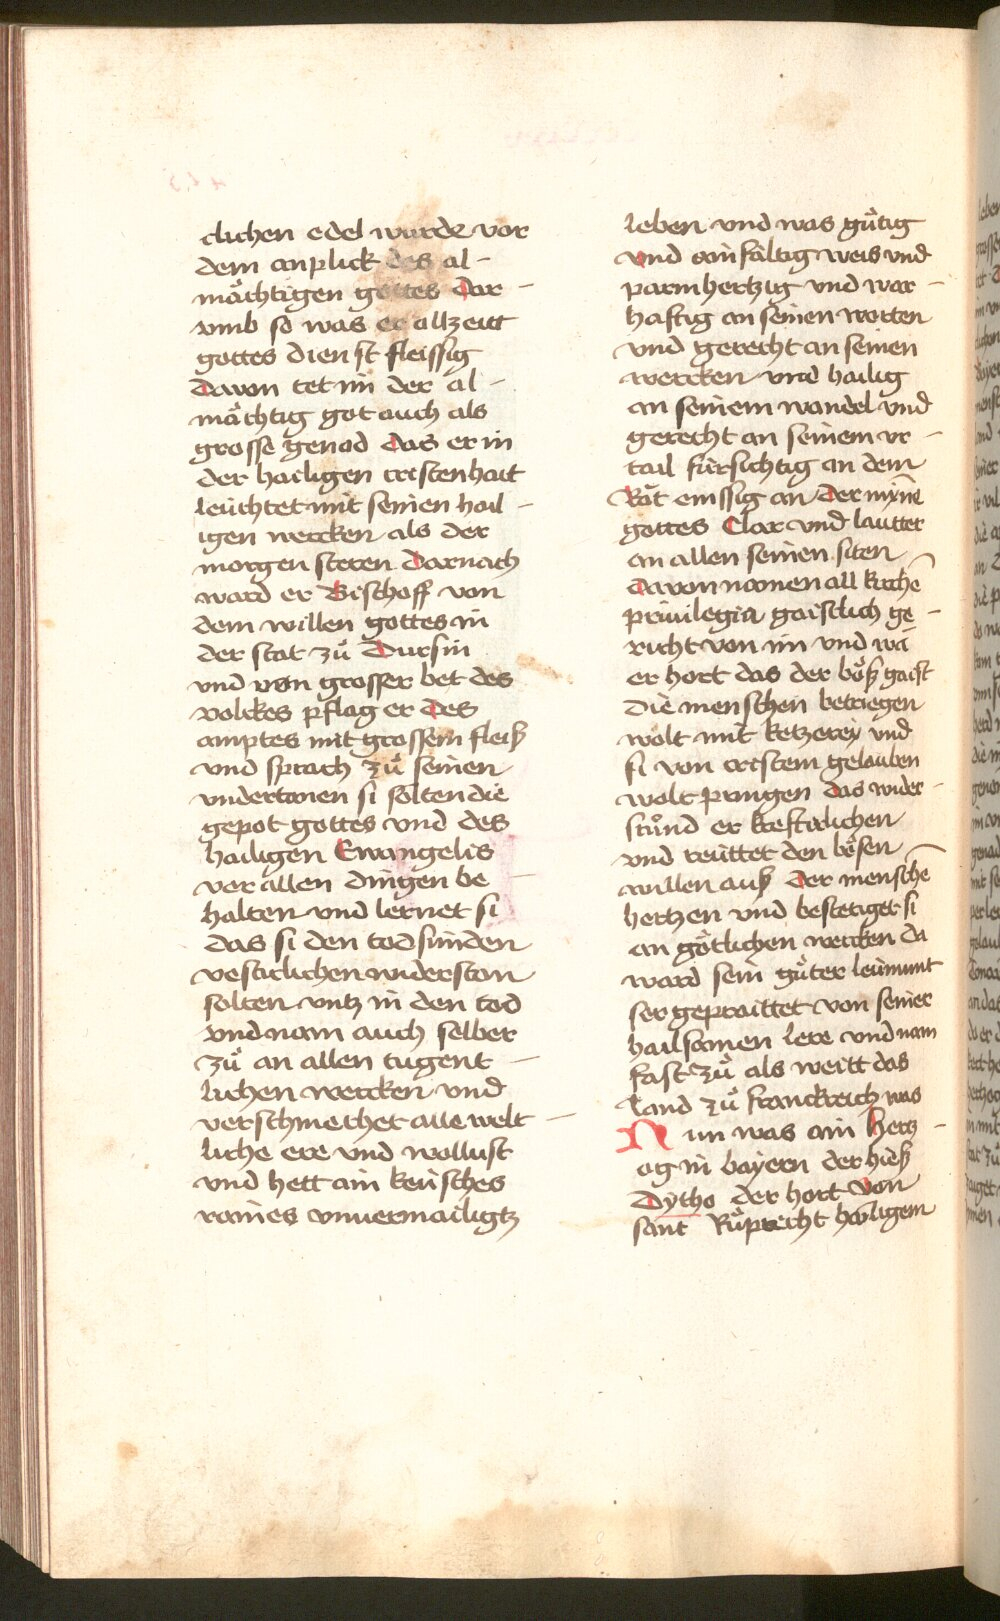 clichen edel wurde vor
dem anplick des al-
mächtigen gottes Dar-
vmb so was er allzeitt
gottes dienst fleissig
Davon tet im der al-
mächtig got auch als
grosse genad das er in
der hailigen cristenhait
leüchtet mit seinen hail-
igen wercken als der
morgen steren. Darnach
ward er Bischoff von
dem willen gottes in
der stat zů Dursin
vnd von grosser bet des
volckes pflag er des
amptes mit grossem fleiß
vnd sprach zů seinen
vndertonen si solten die
gepot gottes vnd des
hailigen Ewangelis
vor allen dingen be-
halten vnd lernet si
das si den tod sünden
vesticlichen widerston
solten vntz in den tod
vnd nam auch selber
zů an allen tugent-
lichen wercken vnd
verschmechet alle welt-
liche ere vnd wollust
vnd hett ain keüsches
raines vnuermailigtz
leben vnd was gůtig
vnd ainfältig weis vnd
parmhertzig vnd war-
haftig an seinen worten
vnd gerecht an seinen
wercken vnd hailig
an seinem wandel vnd
gerecht an seinem vr-
tail fürsichtig an dem
Rät emssig an der myne
gottes Clar vnd lautter
an allen seinen siten
Davon namen all kirchē
priuilegia gaistlich ge-
richt von im vnd wā
er hort das der böß gaist
die menschen betriegen
wolt mit ketzerey vnd
si von cristem gelauben
wolt pringen das wider-
stůnd er krefticlichen
vnd reüttet den bösen
willen auß der menschē
hertzen vnd bestetiget si
an götlichen wercken da
ward sein gůter leümunt
ser gepraittet von seiner
hailsamen lere vnd nam
fast zů als weitt das
land zů franckreich was
Nun was ain hertz-
og in bayern der hieß
Dytho der hort von
sant Růprecht hailigem